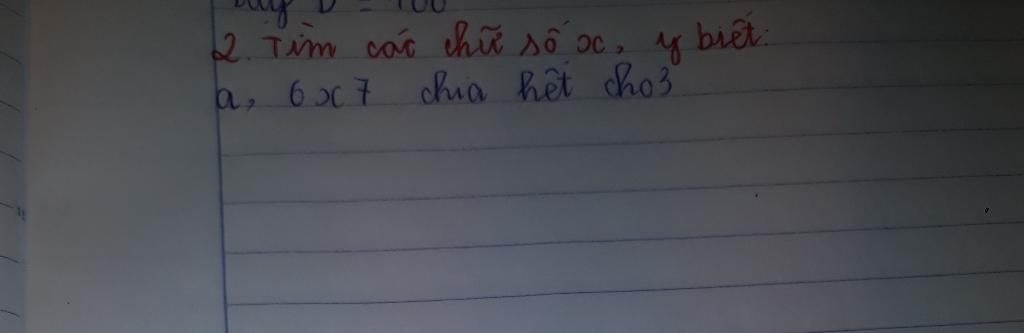 = 100
2. Tìm các chữ số x, y biết:
a, 6x7 chia hết cho 3